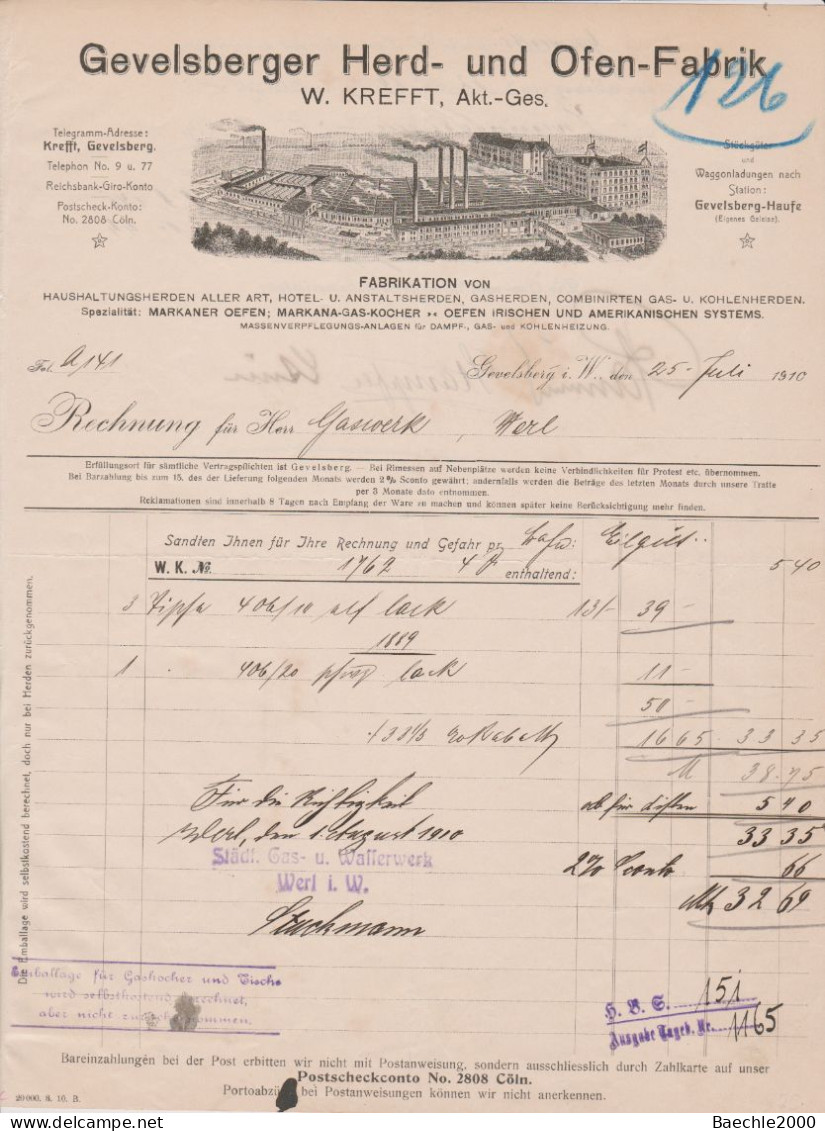 Gevelsberger Herd- und Ofen-Fabrik
W. KREFFT, Akt.-Ges.
126
Telegramm-Adresse:
Krefft, Gevelsberg.
Telephon No. 9 u. 77
Reichsbank-Giro-Konto
Postscheck-Konto:
No. 2808 Cöln.
Stückgüter
und
Waggonladungen nach
Station:
Gevelsberg-Haufe
(Eigenes Geleise).
FABRIKATION VON
HAUSHALTUNGSHERDEN ALLER ART, HOTEL- U. ANSTALTSHERDEN, GASHERDEN, COMBINIRTEN GAS- U. KOHLENHERDEN.
Spezialität: MARKANER OEFEN; MARKANA-GAS-KOCHER OEFEN IRISCHEN UND AMERIKANISCHEN SYSTEMS.
MASSENVERPFLEGUNGS-ANLAGEN für DAMPF-, GAS- und KOHLENHEIZUNG.
Fol. A,141
Gevelsberg i. W., den 25. Juli 1910
Rechnung für Herr Gaswerk, Werl
Erfüllungsort für sämtliche Vertragspflichten ist Gevelsberg. — Bei Rimessen auf Nebenplätze werden keine Verbindlichkeiten für Protest etc. übernommen.
Bei Barzahlung bis zum 15. des der Lieferung folgenden Monats werden 2% Sconto gewährt; andernfalls werden die Beträge des letzten Monats durch unsere Tratte
per 3 Monate dato entnommen.
Reklamationen sind innerhalb 8 Tagen nach Empfang der Ware zu machen und können später keine Berücksichtigung mehr finden.
Sandten Ihnen für Ihre Rechnung und Gefahr pr. Bahn: Eilgut
W. K. No. 1762 enthaltend: 5 40
3 406/10 lack 13/- 39 -
1889
1 406/20 lack 11 -
50 -
33 1/3 % Rabatt 16 65 33 35
M 38.75
Für die Richtigkeit ab für 5 40
Werl, den 1. August 1910 33 35
Städt. Gas- u. Wasserwerk
2% Sconto 66
Werl i. W.
Mk 32 69
Stuckmann
Die Emballage wird selbstkostend berechnet, doch nur bei Herden zurückgenommen.
Emballage für Gaskocher und Tische
wird selbstkostend berechnet,
aber nicht zurückgenommen.
H. B. S. 151
Ausgabe Tageb. Nr. 1165
Bareinzahlungen bei der Post erbitten wir nicht mit Postanweisung, sondern ausschliesslich durch Zahlkarte auf unser
Postscheckconto No. 2808 Cöln.
Portoabzüge bei Postanweisungen können wir nicht anerkennen.
20000. 8. 10. B.
Baechle2000